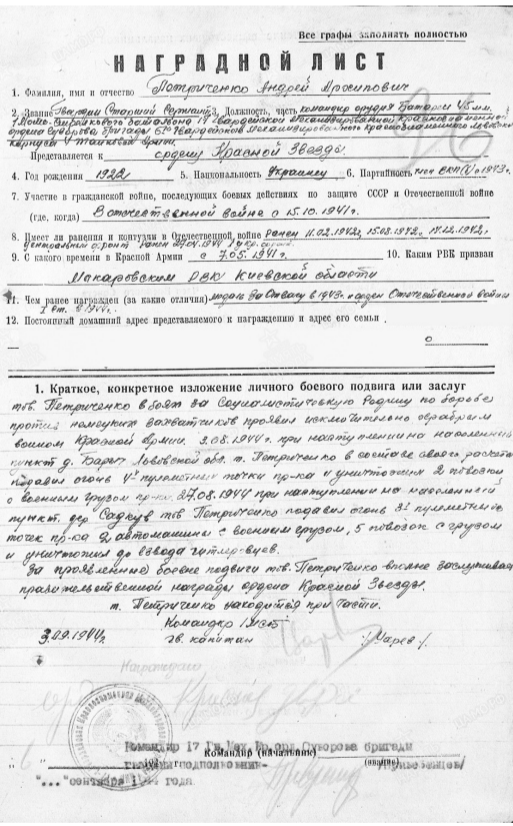 Все графы заполнять полностью
НАГРАДНОЙ ЛИСТ
1. Фамилия, имя и отчество Петриченко Андрей
2. Звание Гвардии Старший Сержант 3. Должность, часть командир орудия Батареи 45 мм.
1 батальона 17 Гвардейской механизированной Краснознаменной
ордена Суворова Бригады 6го Гвардейского механизированного Краснознаменного Львовского
корпуса 4 танковой армии.
Представляется к ордену Красной Звезды
4. Год рождения 1922 5. Национальность Украинец 6. Партийность член ВКП(б) с 1943г.
7. Участие в гражданской войне, последующих боевых действиях по защите СССР и Отечественной войне
(где, когда) В отечественной войне с 15.10.1941г.
8. Имеет ли ранения и контузии в Отечественной войне ранен 11.02.1942г, 15.08.1942г. 14.12.1942г.
Центральный фронт ранен 1944 1 Укр.
9. С какого времени в Красной Армии с 7.05.1941г. 10. Каким РВК призван
Макаровским РВК Киевской области
11. Чем ранее награжден (за какие отличия) медаль За Отвагу в 1943г. орден Отечественной войны
I ст. в 1944г.
12. Постоянный домашний адрес представляемого к награждению и адрес его семьи
1. Краткое, конкретное изложение личного боевого подвига или заслуг
тов. Петриченко в боях за Социалистическую Родину по борьбе
против немецких захватчиков проявил исключительно храбрым
воином Красной Армии. 3.08.1944г. при наступлении на населенный
пункт д. Львовской обл. т. Петриченко в составе своего расчета
подавил огонь 4х пулеметных точки пр-ка и уничтожил 2 повозки
с военным грузом пр-ка. 27.08.1944 при наступлении на населенный
пункт дер Садкув тов Петриченко подавил огонь 3х пулеметные
точек пр-ка 2 автомашины с военным грузом, 5 повозок с грузом
и уничтожил до взвода гитлеровцев.
За проявленные боевые подвиги тов. Петриченко вполне заслуживает
правительственной награды ордена Красной Звезды.
т. Петриченко находится при части.
Командир 1 мсб
3.09.1944г. гв. капитан /Царев/.
Награждаю
орд Красная Звезда
Командир 17 Гв. Мех. Кр. орд. Суворова бригады
Командир (начальник)
гвардии подполковник-
(звание)
"..." сентября года